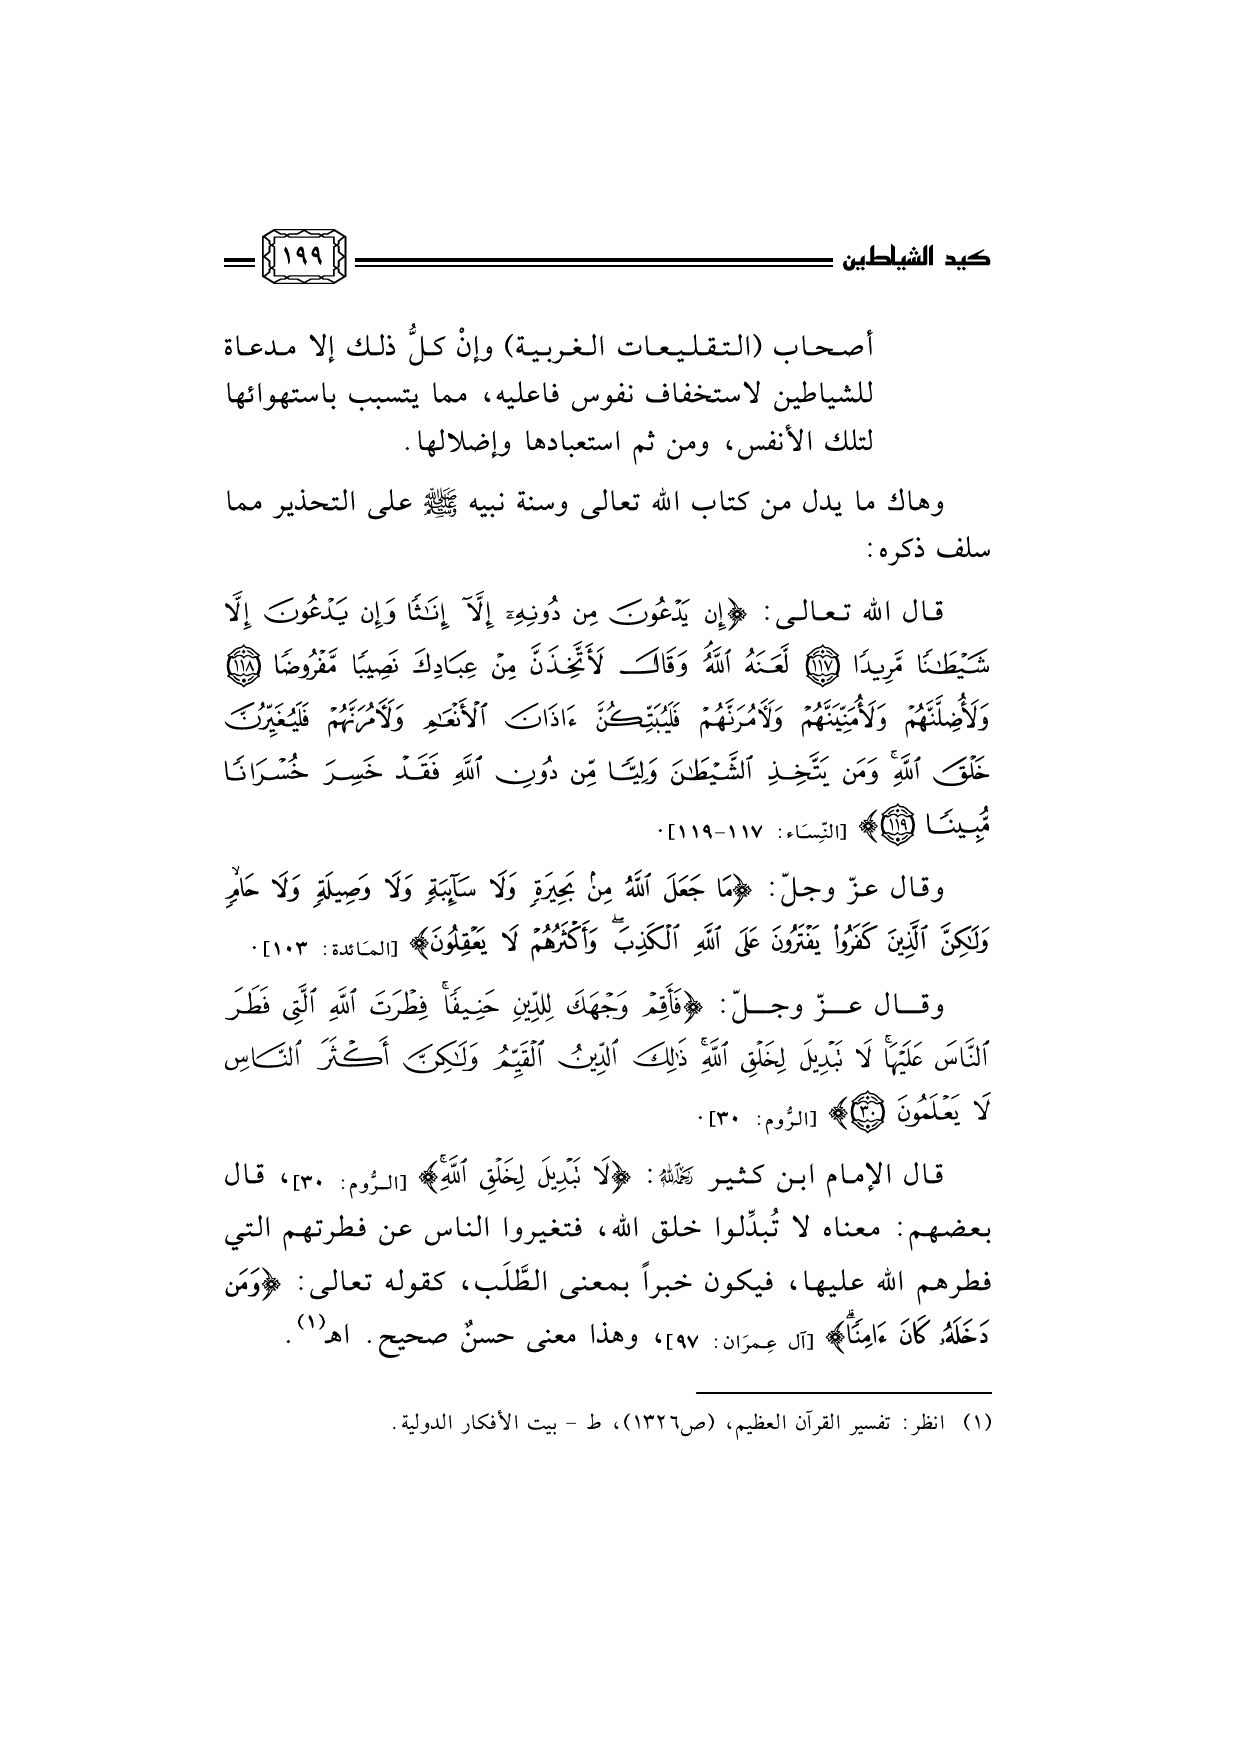 كيد الشياطين ١٩٩
أصحاب (التقليعات الغربية) وإنْ كلُّ ذلك إلا مدعاة
للشياطين لاستخفاف نفوس فاعليه، مما يتسبب باستهوائها
لتلك الأنفس، ومن ثم استعبادها وإضلالها.
وهاك ما يدل من كتاب الله تعالى وسنة نبيه ﷺ على التحذير مما
سلف ذكره:
قال الله تعالى: ﴿إِن يَدْعُونَ مِن دُونِهِۦٓ إِلَّآ إِنَٰثًا وَإِن يَدْعُونَ إِلَّا
شَيْطَٰنًا مَّرِيدًا ١١٧ لَّعَنَهُ ٱللَّهُ وَقَالَ لَأَتَّخِذَنَّ مِنْ عِبَادِكَ نَصِيبًا مَّفْرُوضًا ١١٨
وَلَأُضِلَّنَّهُمْ وَلَأُمَنِّيَنَّهُمْ وَلَآمُرَنَّهُمْ فَلَيُبَتِّكُنَّ ءَاذَانَ ٱلْأَنْعَٰمِ وَلَآمُرَنَّهُمْ فَلَيُغَيِّرُنَّ
خَلْقَ ٱللَّهِ ۚ وَمَن يَتَّخِذِ ٱلشَّيْطَٰنَ وَلِيًّا مِّن دُونِ ٱللَّهِ فَقَدْ خَسِرَ خُسْرَانًا
مُّبِينًا ١١٩﴾ [النِّسَاء: ١١٧-١١٩].
وقال عزّ وجلّ: ﴿مَا جَعَلَ ٱللَّهُ مِنۢ بَحِيرَةٍ وَلَا سَآئِبَةٍ وَلَا وَصِيلَةٍ وَلَا حَامٍ ۙ
وَلَٰكِنَّ ٱلَّذِينَ كَفَرُوا۟ يَفْتَرُونَ عَلَى ٱللَّهِ ٱلْكَذِبَ ۖ وَأَكْثَرُهُمْ لَا يَعْقِلُونَ﴾ [المَائدة: ١٠٣].
وقال عزّ وجلّ: ﴿فَأَقِمْ وَجْهَكَ لِلدِّينِ حَنِيفًا ۚ فِطْرَتَ ٱللَّهِ ٱلَّتِى فَطَرَ
ٱلنَّاسَ عَلَيْهَا ۚ لَا تَبْدِيلَ لِخَلْقِ ٱللَّهِ ۚ ذَٰلِكَ ٱلدِّينُ ٱلْقَيِّمُ وَلَٰكِنَّ أَكْثَرَ ٱلنَّاسِ
لَا يَعْلَمُونَ ٣٠﴾ [الرُّوم: ٣٠].
قال الإمام ابن كثير رحمه الله: ﴿لَا تَبْدِيلَ لِخَلْقِ ٱللَّهِ ۚ﴾ [الرُّوم: ٣٠]، قال
بعضهم: معناه لا تُبدِّلوا خلق الله، فتغيروا الناس عن فطرتهم التي
فطرهم الله عليها، فيكون خبراً بمعنى الطَّلَب، كقوله تعالى: ﴿وَمَن
دَخَلَهُۥ كَانَ ءَامِنًا ۗ﴾ [آل عِمرَان: ٩٧]، وهذا معنى حسنٌ صحيح. اهـ(١).
(١) انظر: تفسير القرآن العظيم، (ص١٣٢٦)، ط - بيت الأفكار الدولية.